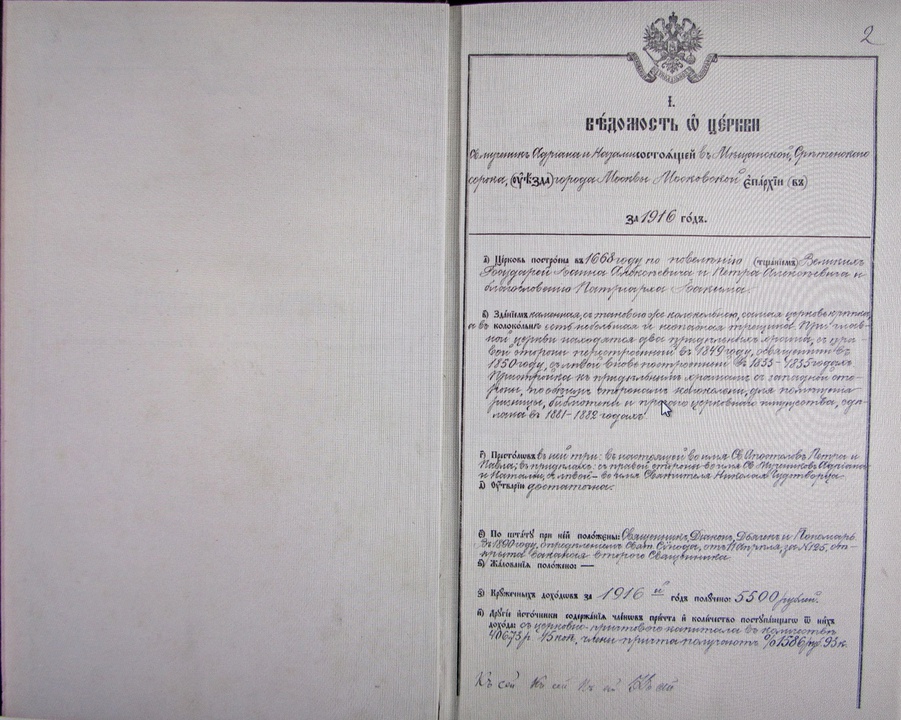 2
І.
ВѢ́ДОМОСТЬ Ѿ ЦЕ́РКВИ
Св. мученик. Адріана и Наталіи состоящей въ Мѣщанской, Срѣтенскаго
сорока, (оу҆ѣзда) города Москвы Московской Єпархїи (въ)
за 1916 го́дъ.
а) Церковь построена въ 1668 году по повелѣнію (тщанїемъ) Великихъ
Государей Іоанна Алексѣевича и Петра Алексѣевича и
благословенію Патріарха Іоакима.
в) Зданїемъ каменная, съ таковою же колокольнею, самая церковь крѣпка,
а въ колокольнѣ есть небольшая и неопасная трещина. При глав-
ной церкви находятся два придѣльныхъ храма, съ пра-
вой стороны перестроенный въ 1849 году, освященъ въ
1850 году, съ лѣвой вновь построенный въ 1833-1835 годахъ.
Пристройка къ придѣльнымъ храмамъ съ западной сто-
роны, по обѣимъ сторонамъ колокольни, для помѣщенія
ризницы, библіотеки и прочаго церковнаго имущества, сдѣ-
лана въ 1881-1882 годахъ.
г) Престоловъ въ ней три: въ настоящей во имя Св. Апостоловъ Петра и
Павла; въ придѣлахъ: съ правой стороны во имя Св. Мучениковъ Адріана
и Наталіи, съ лѣвой - во имя Святителя Николая Чудотворца.
д) Оу҆тварїю достаточна.
є) По штату при ней положены: Священникъ, Діаконъ, Дьячекъ и Пономарь.
Въ 1890 году, опредѣленіемъ Свят. Сѵнода, отъ 11 Апрѣля, за №125, от-
крыта вакансія втораго Священника.
ѕ) Жалованїя положено: —
з) Кружечныхъ доходовъ за 1916 й годъ получено: 5500 рублей.
и) Другїе источники содержанїя членовъ причта и количество поступившаго ѿ нихъ
дохода: съ церковно-причтоваго капитала въ количествѣ
40673 р. 45 коп. члены причта получаютъ % 1586 руб. 93 к.
Къ сей Къ сей Къ сей Къ сей